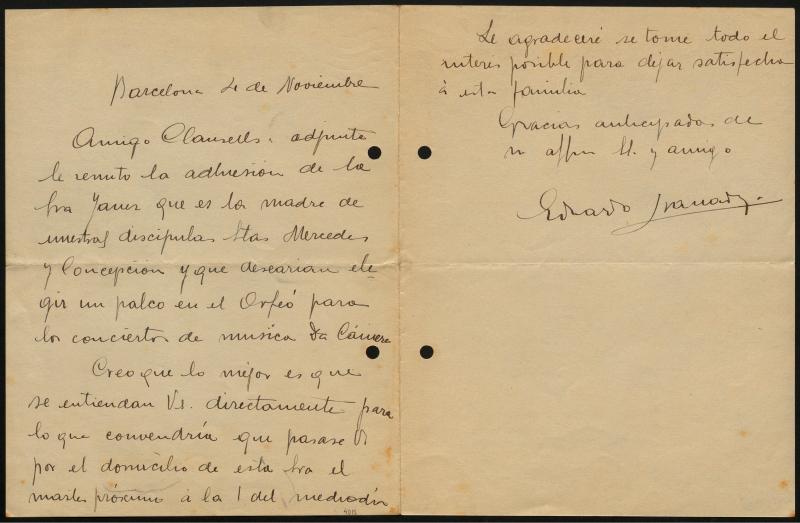 Barcelona 4 de Noviembre
Amigo Clausells: adjunto
le remito la adhesión de la
Sra Janer que es la madre de
nuestras discipulas Stas Mercedes
y Concepción y que desearian ele=
gir un palco en el Orfeó para
los conciertos de musica Da Cámera
Creo que lo mejor es que
se entiendan Vs. directamente para
lo que convendría que pasase V
por el domicilio de esta Sra el
martes próximo á la 1 del mediodía
4015
Le agradeceré se tome todo el
interes posible para dejar satisfecha
á esta familia
Gracias anticipadas de
su affmo y amigo
Eduardo Granados